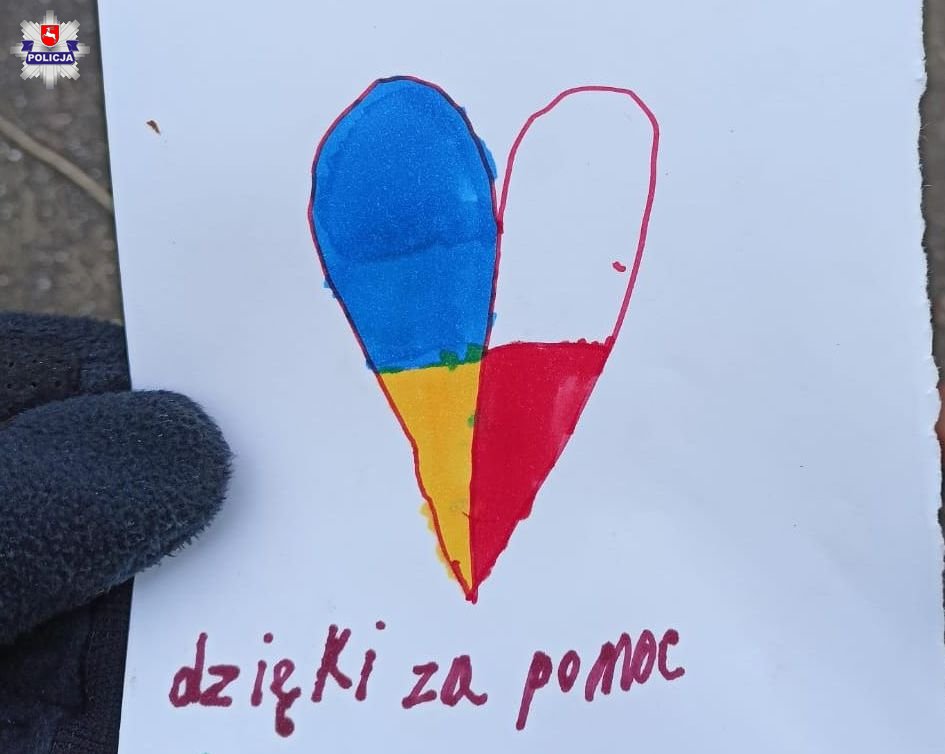 POLICJA
dzięki za pomoc